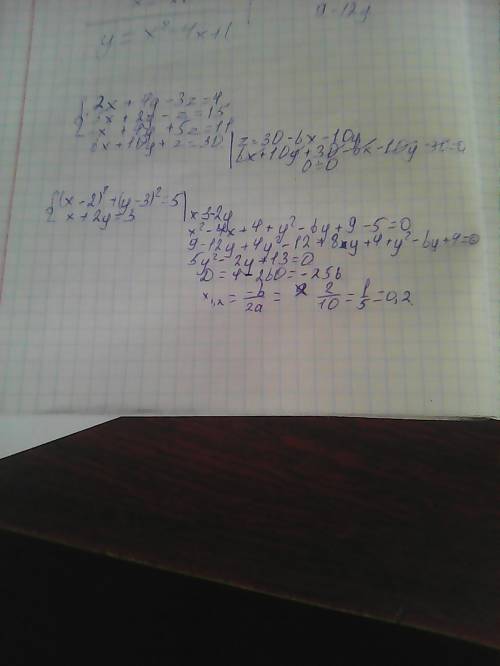 y = x² - 4x + 1
2x + 4y - 3z = 4
3x + 2y - z = 15
x + 4y + 5z = 11
6x + 10y + z = 30 | z = 30 - 6x - 10y
6x + 10y + 30 - 6x - 10y - 30 = 0
0 = 0
{(x - 2)² + (y - 3)² = 5 | x = 3 - 2y
x + 2y = 3
x² - 4x + 4 + y² - 6y + 9 - 5 = 0
9 - 12y + 4y² - 12 + 8y + 4 + y² - 6y + 9 = 0
5y² - 2y + 13 = 0
D = 4 - 260 = -256
x₁,₂ = -b/2a = 2/10 = 1/5 = 0,2